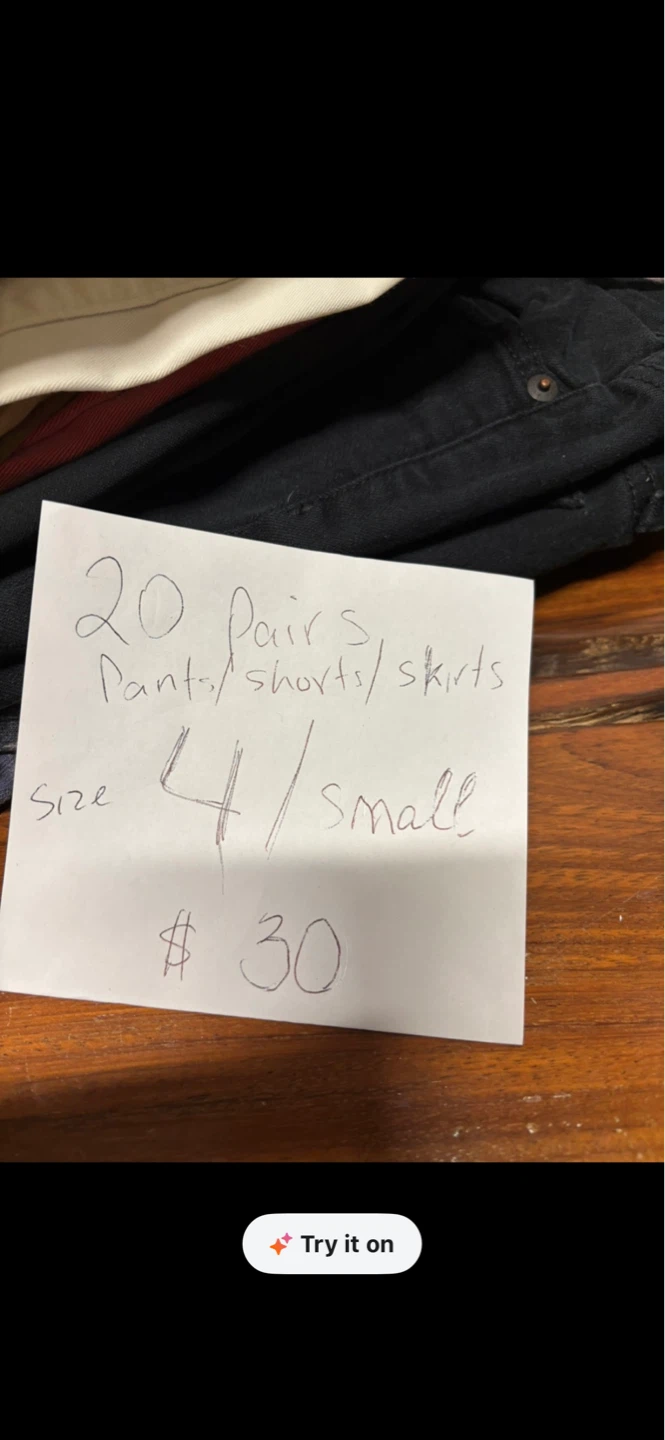 20 Pairs
Pants/shorts/skirts
Size 4/small
$ 30
Try it on